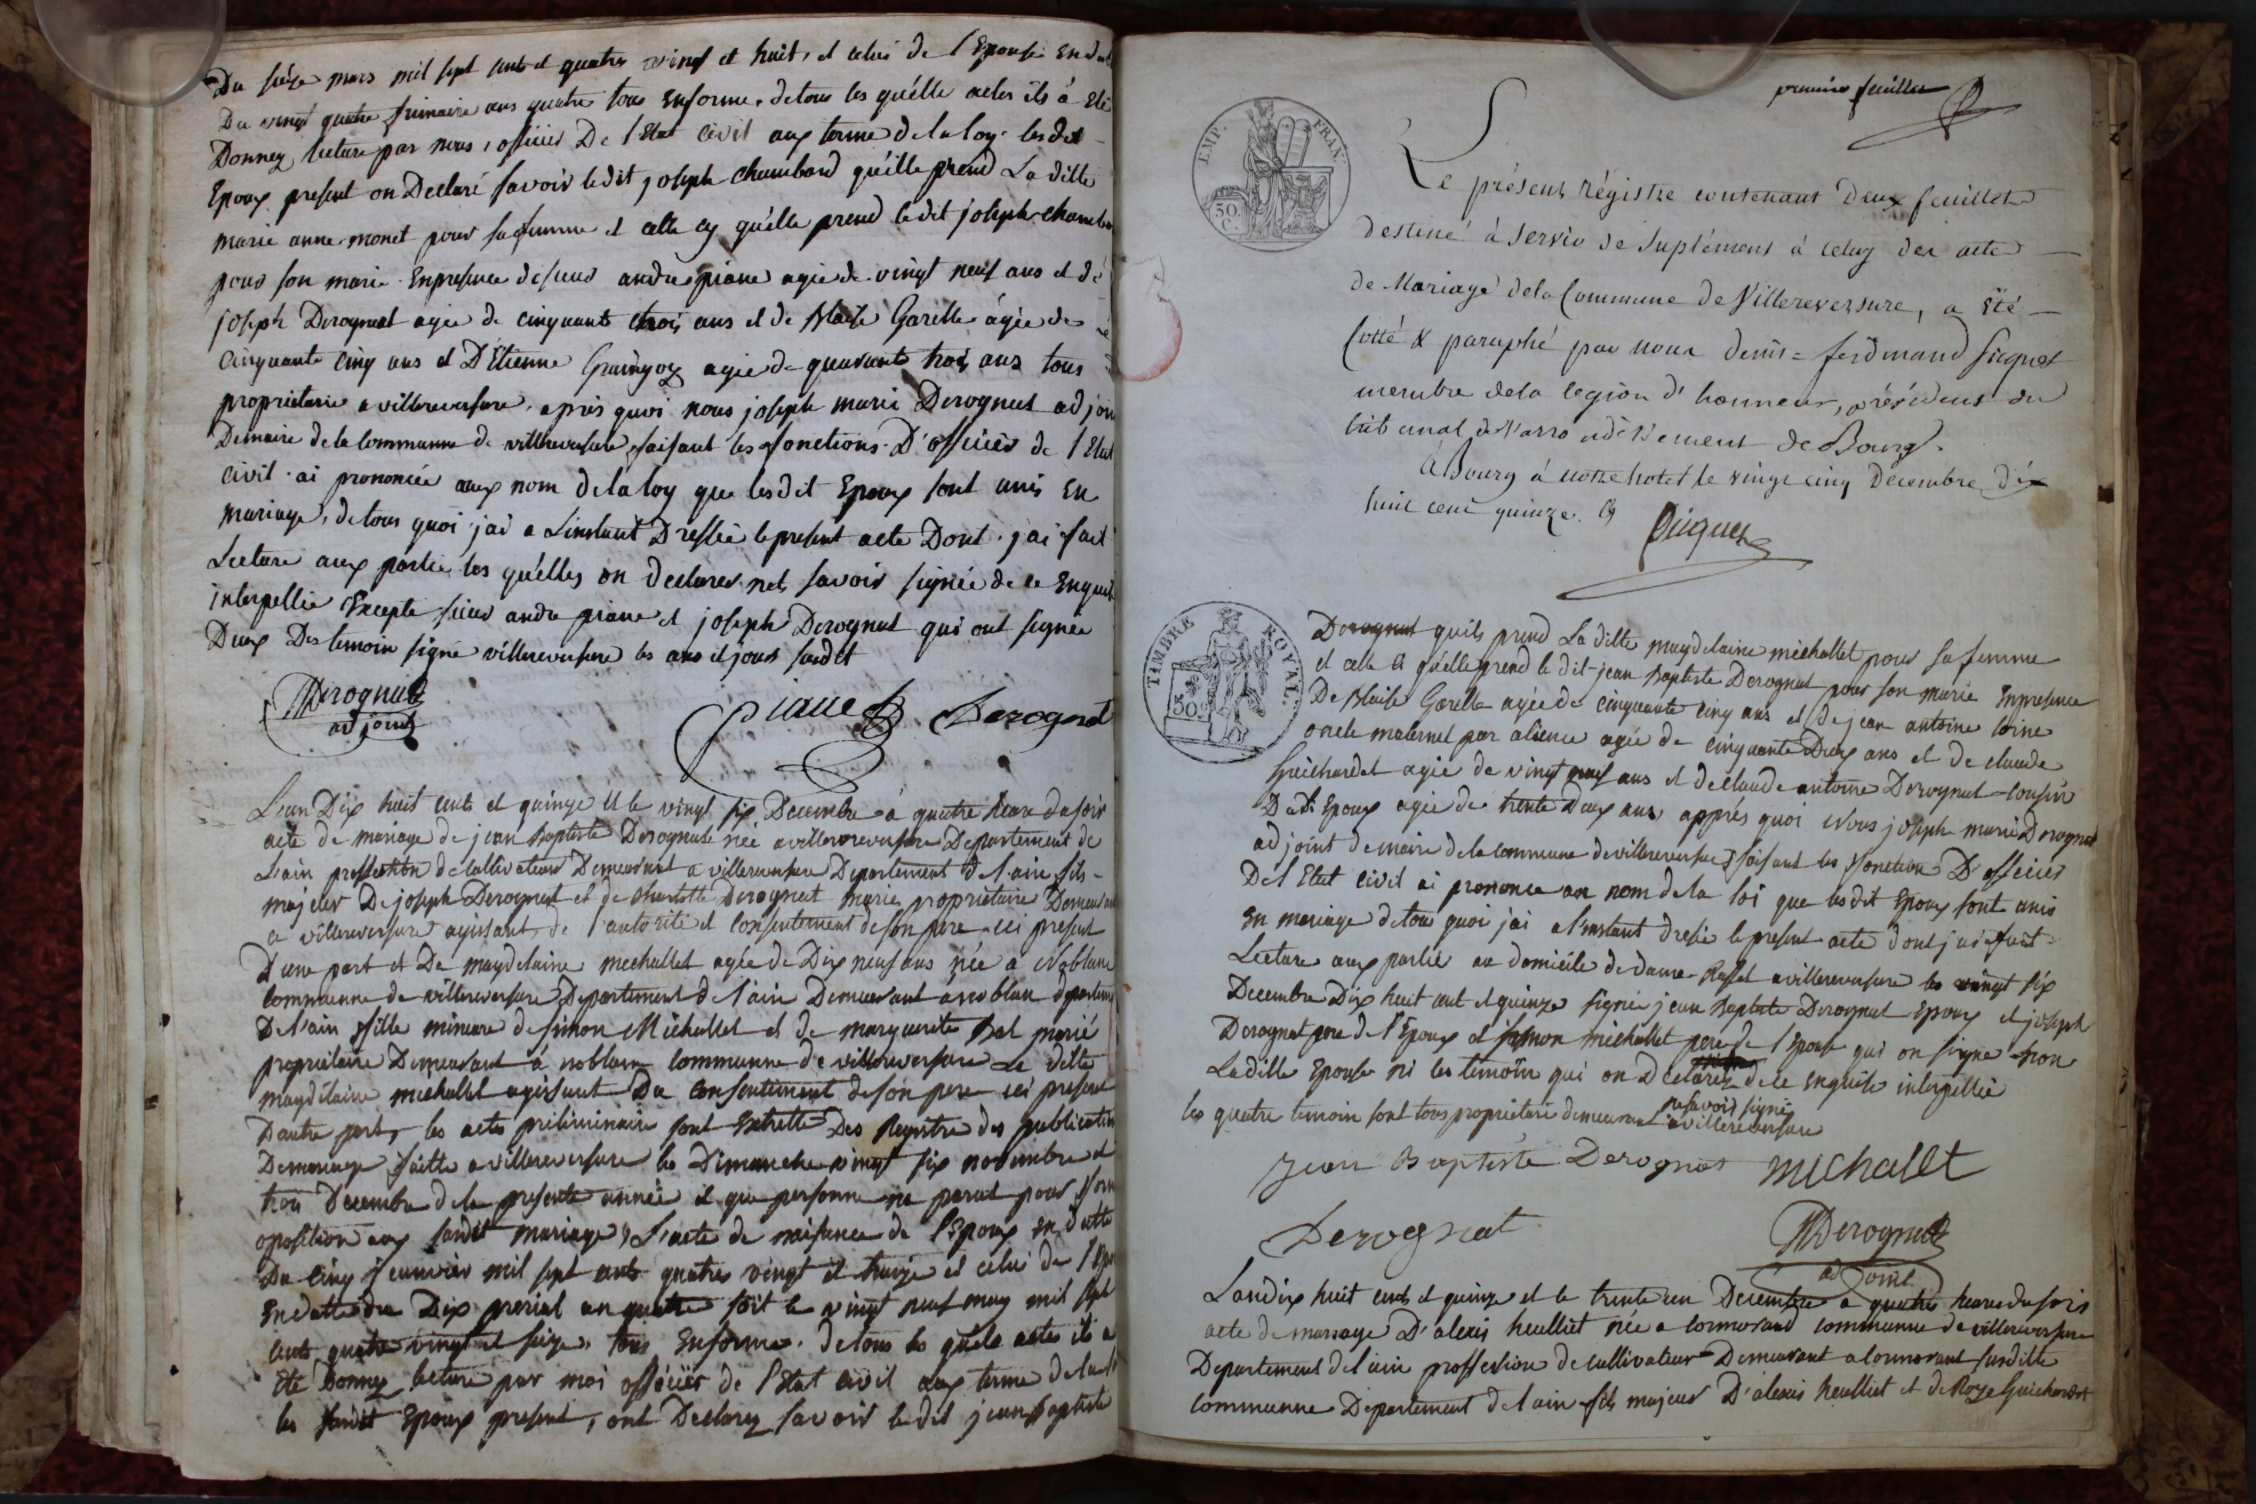 Du seize mars mil sept cents et quatre vingt et huit, et celui de l'Epouse En datte
Du vingt quatre frimaire ans quatre tous Enforme. detous les quélle actes ils à Eté
Donnez lecture par nous, officier De l'Etat Civil aux terme de la loy. lesdit
Epoux present on Declaré savoir ledit joseph chambard quéille prend La ditte
marie anne monet pour sa femme et celle cy quélle prend le dit joseph chambar
pour son marie. Enpresence de sieur andre piane agée de vingt neuf ans et dé
joseph Derognat agée de cinquante trois ans et de Blaise Garelle ágée de
cinquante cinq ans et D'Etienne Graingoy agée de quarante trois ans tous
proprietaire a villereversure. après quoi nous joseph marie Derognat adjoin
Demaire de la Commune de villereversure faisant les fonctions D'officier de l'Etat
Civil. ai prononcée aux nom de la loy que lesdit Epoux sont unis En
mariage, de tous quoi jai a Linstant Dressée le present acte Dont. jai fait
Lecture aux partie les quélles on declarer net savoir signée de ce Enquit
interpellée Excepte sieur andre piane et joseph Derognat qui ont signée
Deux Des temoin signé villereversure les ans et jours susdit
Derognat
adjoint
Piane Derognat
L'an Dix huit cents et quinze et le vingt six Decembre à quatre heure du soir
acte de mariage de jean Baptiste Derognat née avillereversure Departement de
L'ain proffession de Cultivateur Demeurant a villereversure Departement de l'ain fils
majeur De joseph Derognat et de Charlotte Derognat marie proprietaire Demeurant
a villereversure agissant de l'autorité et Consentement de son pere ici present
D'une part et De maydelaine michallet agée de Dix neuf ans née a Noblanc
Commune de villereversure Departement de l'ain Demeurant a noblan departeme
De l'ain fille mineure de simon Michallet et de marguerite Bal marié
proprietaire Demeurant a noblanc commune de villereversure La ditte
maydelaine michallet agissant Du Consentement de son pere ici present
Dautre part, les actes priliminaire sont Extrette Des Registre des publication
Demariage faitte a villereversure les Dimanche vingt six novembre et
trois Decembre de la presente année et que personne ne parut pour form
oposition aux susdit mariage, L'acte de naisance de l'Epoux en datte
Du Cinq janvier mil sept cents quatres vingt et treize et celui de l'Epo
En datte du Dix prerial an quatre soit le vingt neuf may mil sept
cents quatre vingt et seize, tous Enforme. detous les quéle actes ils a
Eté Donnez lecture par moi officier de l'Etat Civil aux terme de la l
les susdit Epoux present, ont Declarez savoir le dit jean Baptiste
premier feuillet
EMP. FRAN.
50. C.
Le présent Régistre contenant Deux feuillets
destiné à servir de suplément à celuy des actes
de Mariage dela Commune de Villereversure, a été
Cotté & paraphé par nous denis = ferdinand Piquet
membre dela légion d'honneur, président du
tribunal de l'arrondissement de Bourg.
à Bourg à notre hotel le vingt cinq Decembre dix
huit cent quinze.
Piquet
TIMBRE ROYAL.
50 C
Derognat quils prend La ditte maydelaine michallet pour sa femme
et celle ci quélle prend le dit jean Baptiste Derognat pour son marie Enpresence
De Blaise Garelle agée de cinquante cinq ans et de jean antoine
oncle maternel par aliance agée de cinquante Deux ans et de claude
Guichardet agée de vingt neuf ans et de claude antoine Derognat cousin
Dudit Epoux agée de trente deux ans appres quoi Nous joseph marie Derognat
adjoint demaire de la commune devillereversure faisant les fonction D'officier
Del'Etat civil ai prononce au nom de la loi que lesdit Epoux sont unis
En mariage detous quoi jai a linstant dresée le present acte dont jai fait
Lecture aux partie au domicile de dame Rosset avillereversure le vingt six
Decembre Dix huit cent et quinze signée jean Baptiste Derognat Epoux et joseph
Derognat pere de l'Epoux et simon michallet pere de l'Epouse qui on signe non
Laditte Epouse ni les temoin qui on Declarez de le Enquite interpellée
ne savoir signé
les quatre temoin sont tous proprietaire demeurant a villereversure
Jean Baptiste Derognat Michallet
Derognat Derognat
adjoint
Landix huit cents et quinze et le trente un Decembre a quatre heures du soir
acte de mariage D'alexis heulliet née a Cormorand commune de villereversure
Departement de l'ain proffession de cultivateur Demeurant a Cormorant susditte
Commune Departement de l'ain fils majeur D'alexis heulliet et de Roze Guichardet